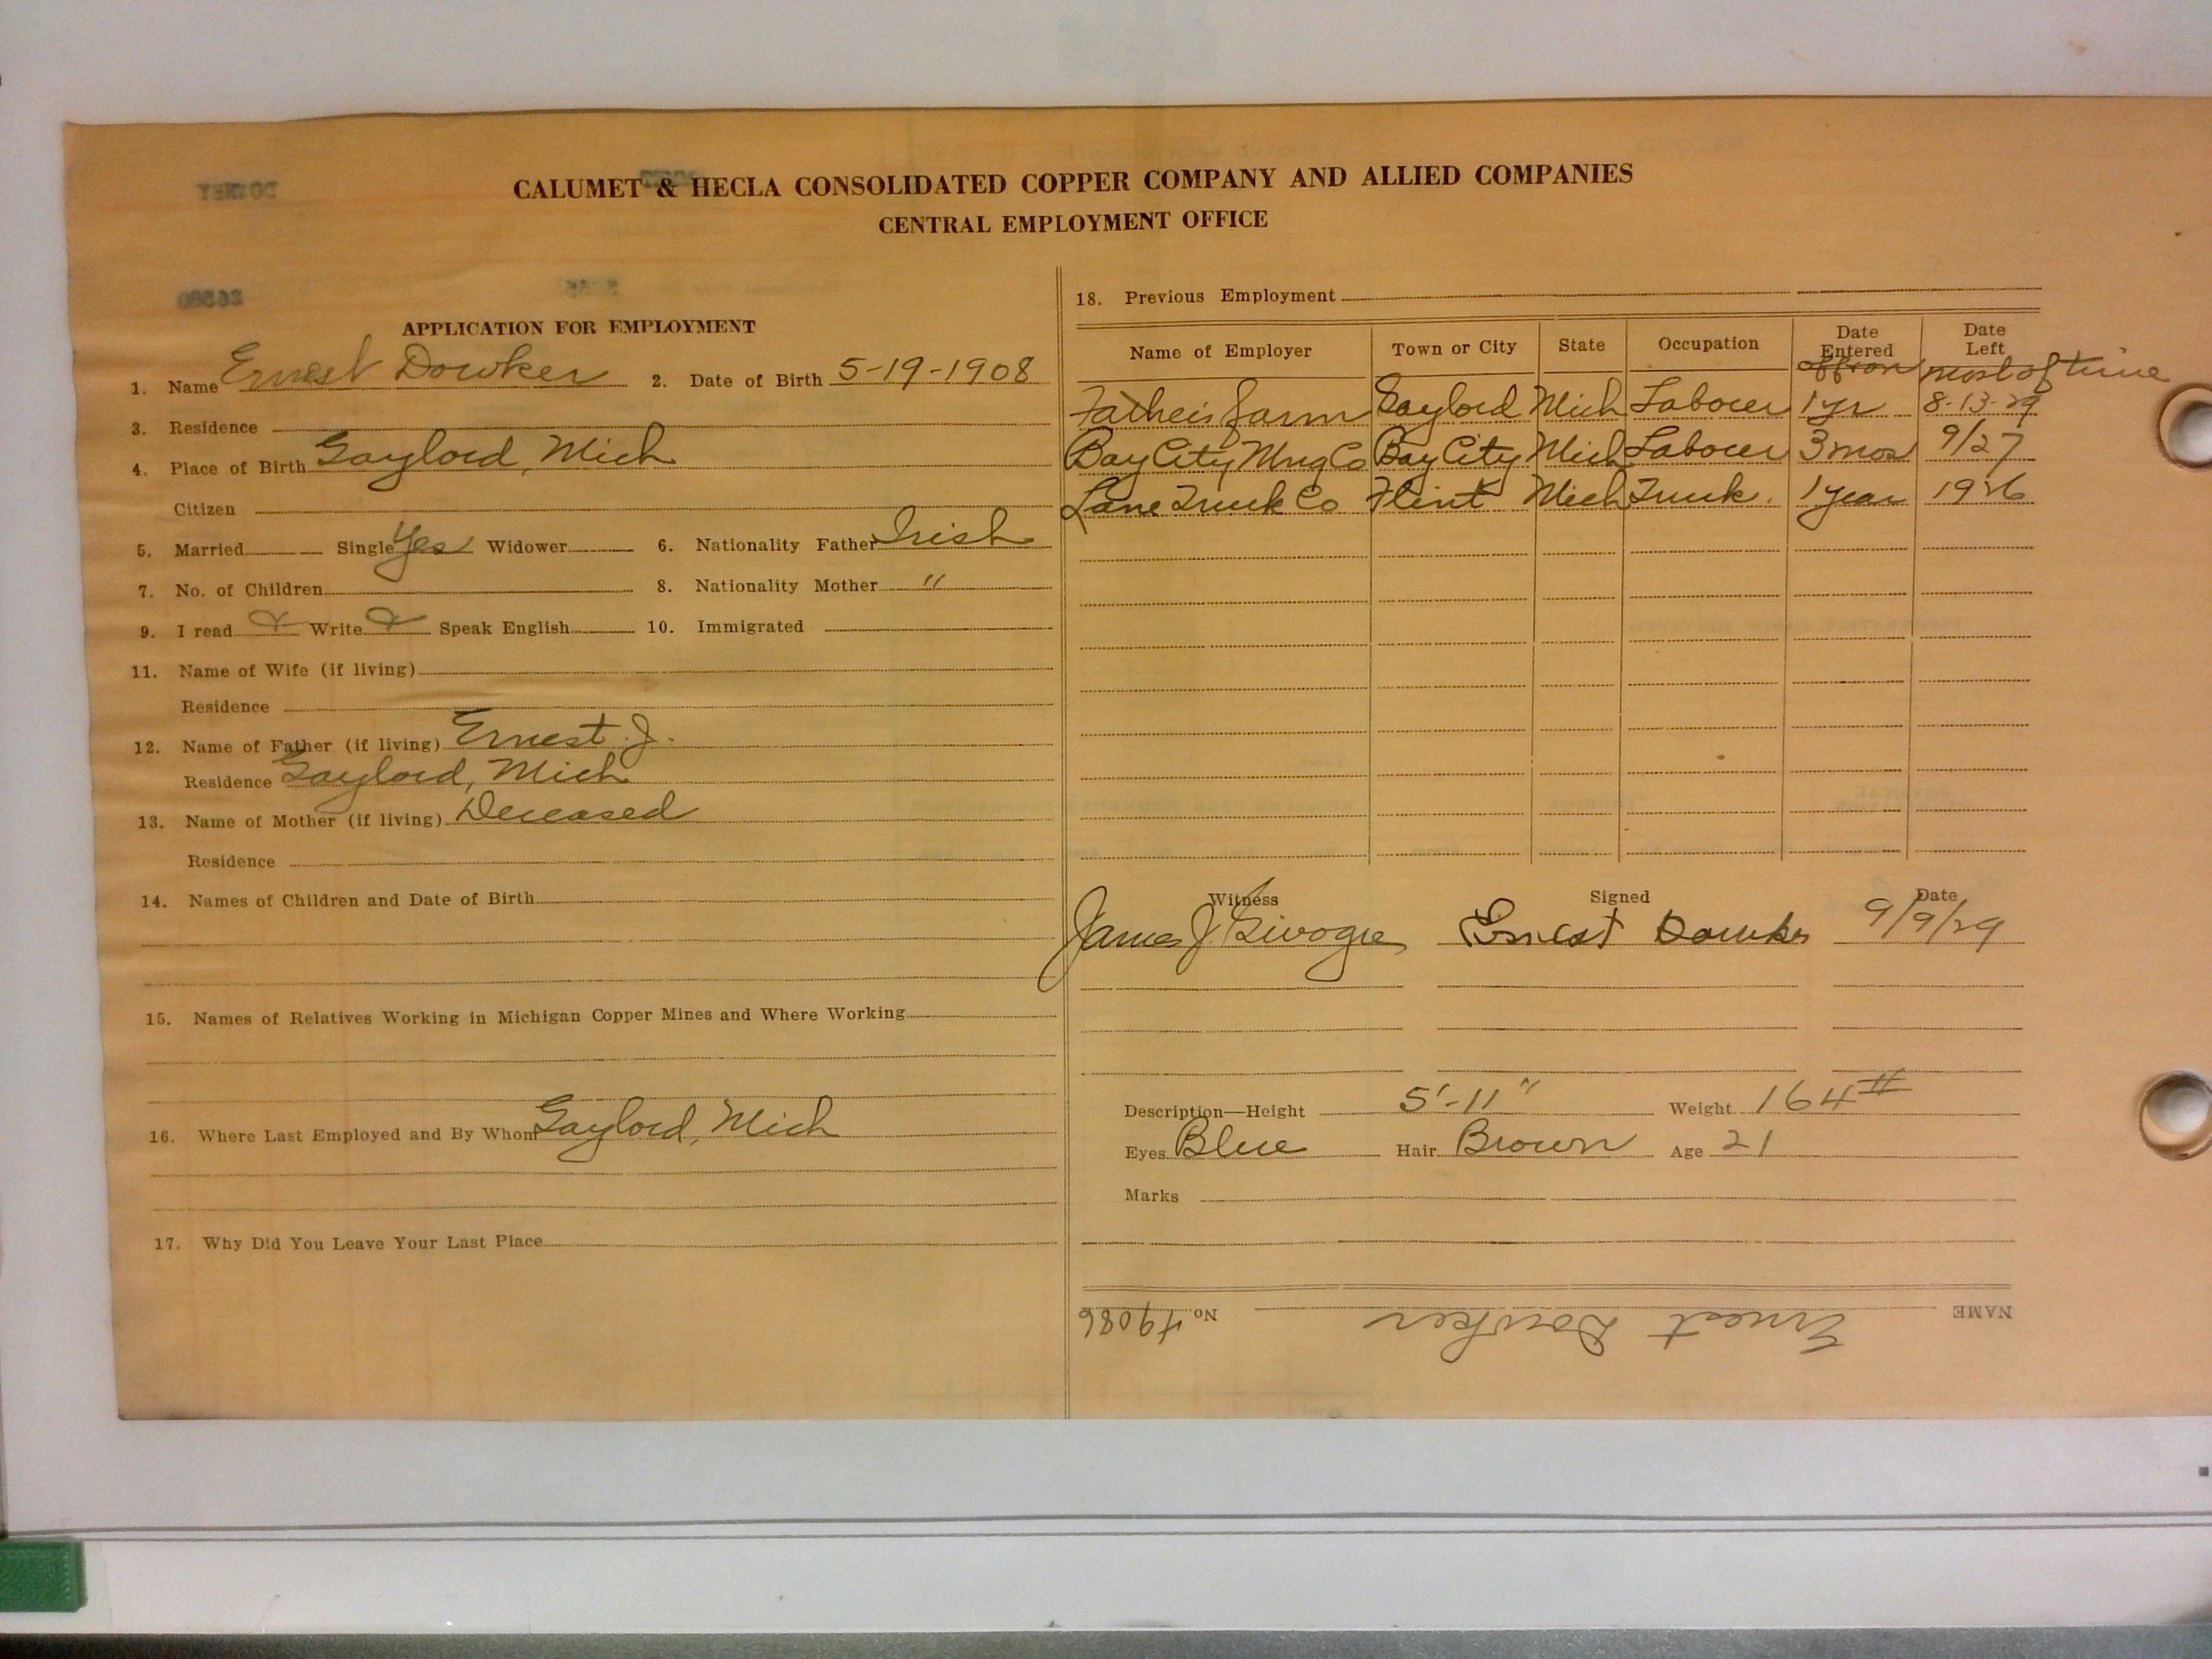 CALUMET & HECLA CONSOLIDATED COPPER COMPANY AND ALLIED COMPANIES
CENTRAL EMPLOYMENT OFFICE
APPLICATION FOR EMPLOYMENT
1. Name Ernest Dowker 2. Date of Birth 5-19-1908
3. Residence
4. Place of Birth Gaylord, Mich
Citizen
5. Married Single Yes Widower 6. Nationality Father Irish
7. No. of Children 8. Nationality Mother "
9. I read Write Speak English 10. Immigrated
11. Name of Wife (if living)
Residence
12. Name of Father (if living) Ernest J.
Residence Gaylord, Mich
13. Name of Mother (if living) Deceased
Residence
14. Names of Children and Date of Birth
15. Names of Relatives Working in Michigan Copper Mines and Where Working
16. Where Last Employed and By Whom Gaylord, Mich
17. Why Did You Leave Your Last Place
18. Previous Employment
Name of Employer Town or City State Occupation Date Entered Date Left
most of time
Father's farm Gaylord Mich Laborer 1 yr 8-13-29
Bay City Mng Co Bay City Mich Laborer 3 mos 9/27
Lane Truck Co Flint Mich Truck. 1 year 1926
Witness Signed Date
James J. Ernest Dowker 9/9/29
Description—Height 5'-11" Weight 164#
Eyes Blue Hair Brown Age 21
Marks
NAME Ernest Dowker No. 49086